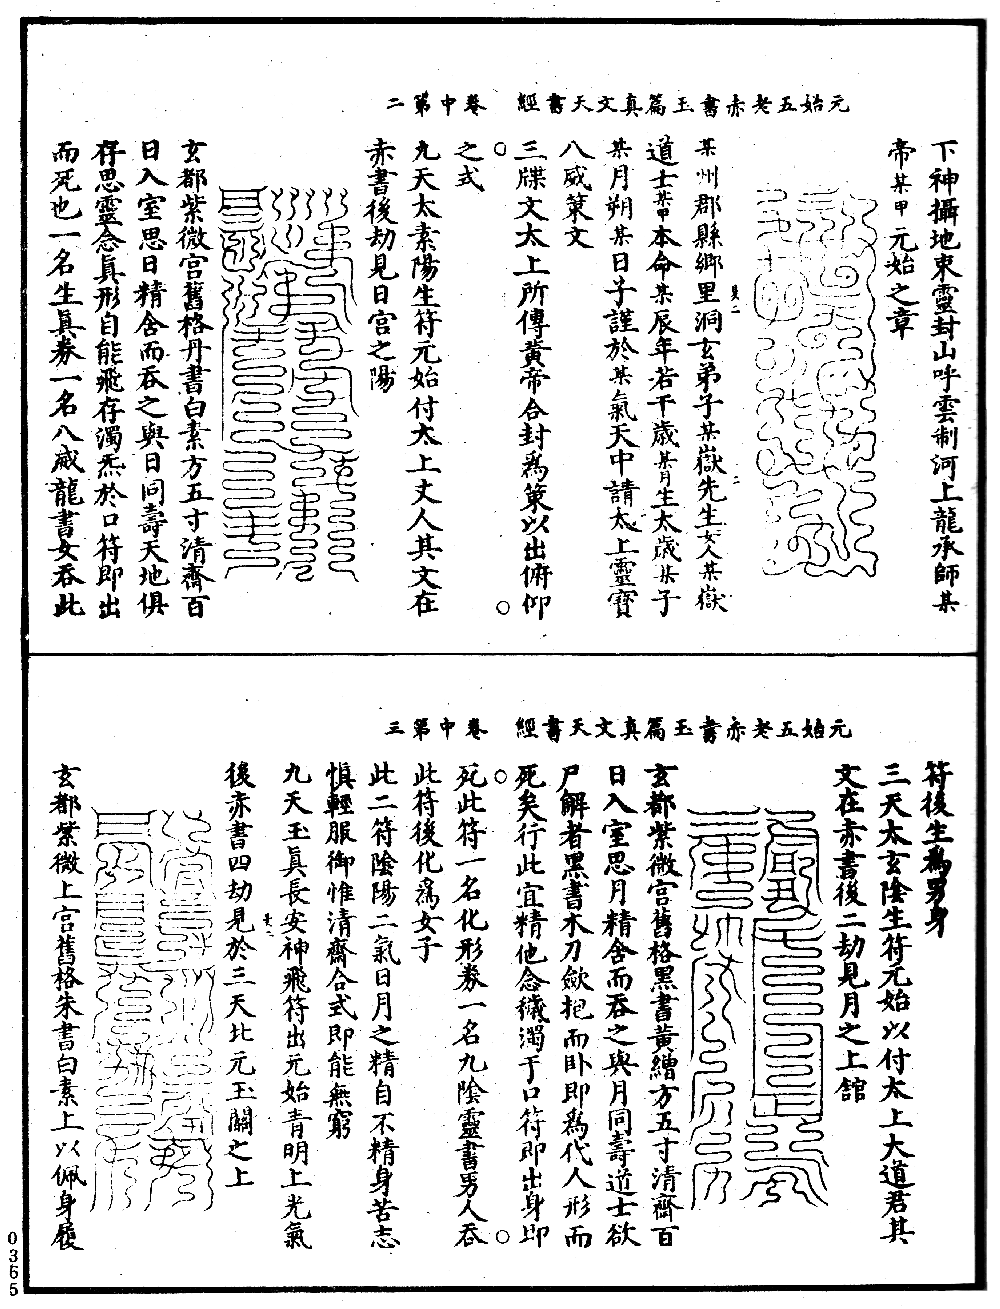 元始五老赤書玉篇真文天書經　卷中第二
下神攝地束靈封山呼雲制河上龍承師某
帝某甲元始之章
某州郡縣鄉里洞玄弟子某嶽先生女人某嶽
道士某甲本命某辰年若干歲某月生太歲某子
某月朔某日子謹於某氣天中請太上靈寶
八威策文
三牒文太上所傳黃帝合封為策以出俯仰
之式
九天太素陽生符元始付太上丈人其文在
赤書後劫見日宮之陽
玄都紫微宮舊格丹書白素方五寸清齋百
日入室思日精舍而吞之與日同壽天地俱
存思靈念真形自能飛存濁炁於口符即出
而死也一名生真券一名八威龍書女吞此
元始五老赤書玉篇真文天書經　卷中第三
符後生為男身
三天太玄陰生符元始以付太上大道君其
文在赤書後二劫見月之上館
玄都紫微宮舊格黑書黃繒方五寸清齋百
日入室思月精舍而吞之與月同壽道士欲
尸解者黑書木刀歛抱而卧即為代人形而
死矣行此宜精他念穢濁于口符即出身即
死此符一名化形券一名九陰靈書男人吞
此符後化為女子
此二符陰陽二氣日月之精自不精身苦志
慎輕服御惟清齋合式即能無窮
九天玉真長安神飛符出元始青明上光氣
後赤書四劫見於三天北元玉闕之上
玄都紫微上宮舊格朱書白素上以佩身履
0365